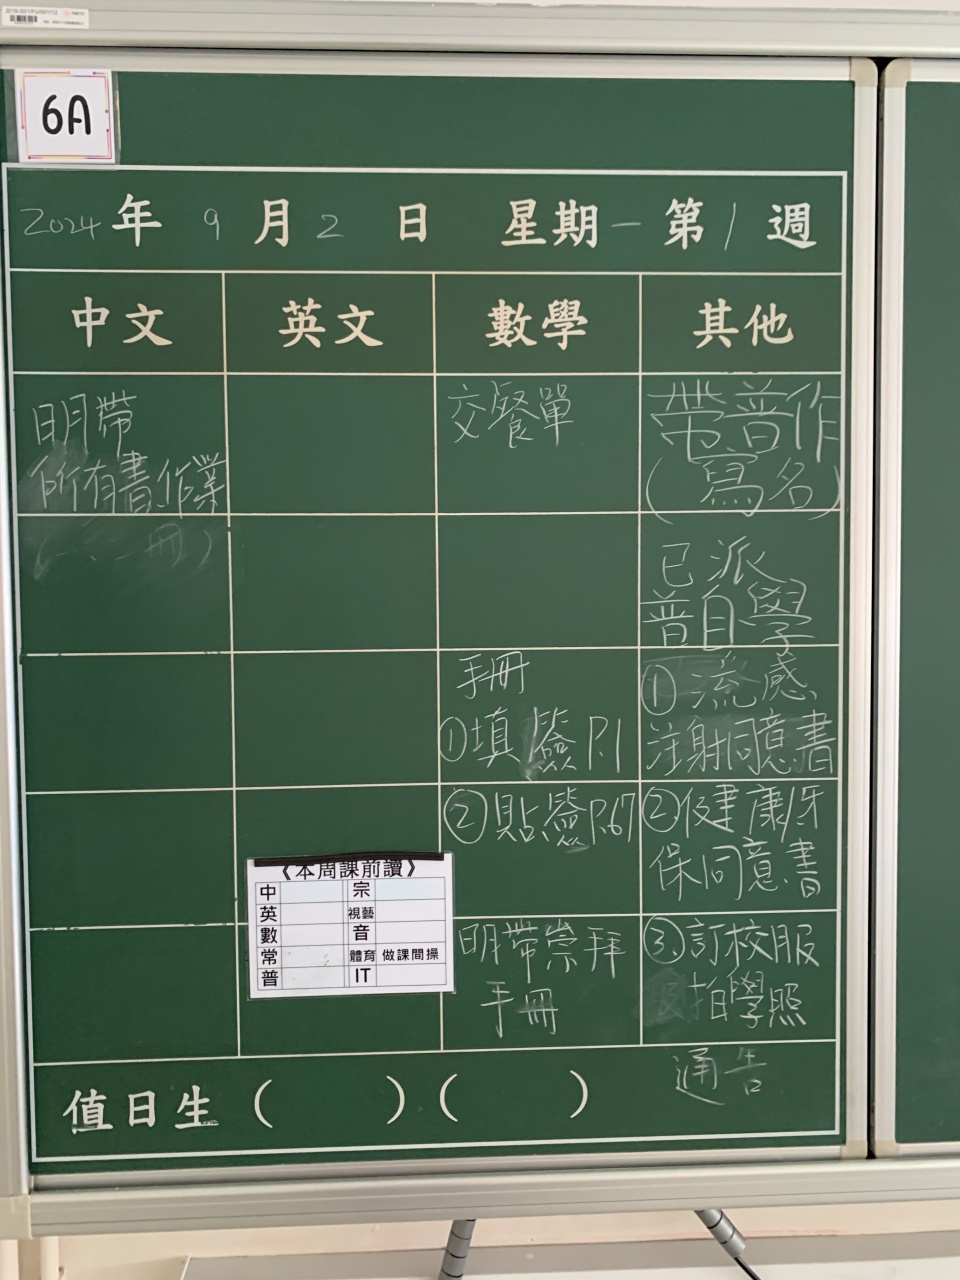 6A
2024年9月2日 星期一 第1週
中文 英文 數學 其他
明帶
所有書、作業
交餐單
帶普作
(寫名)
已派
普自學
手冊
①填/簽P.1
②貼/簽P.67
明帶崇拜
手冊
①流感
注射同意書
②健康/牙
保同意書
③訂校服
拍學照
通告
《本周課前讀》
中 宗
英 視藝
數 音
常 體育 做課間操
普 IT
值日生( )( )